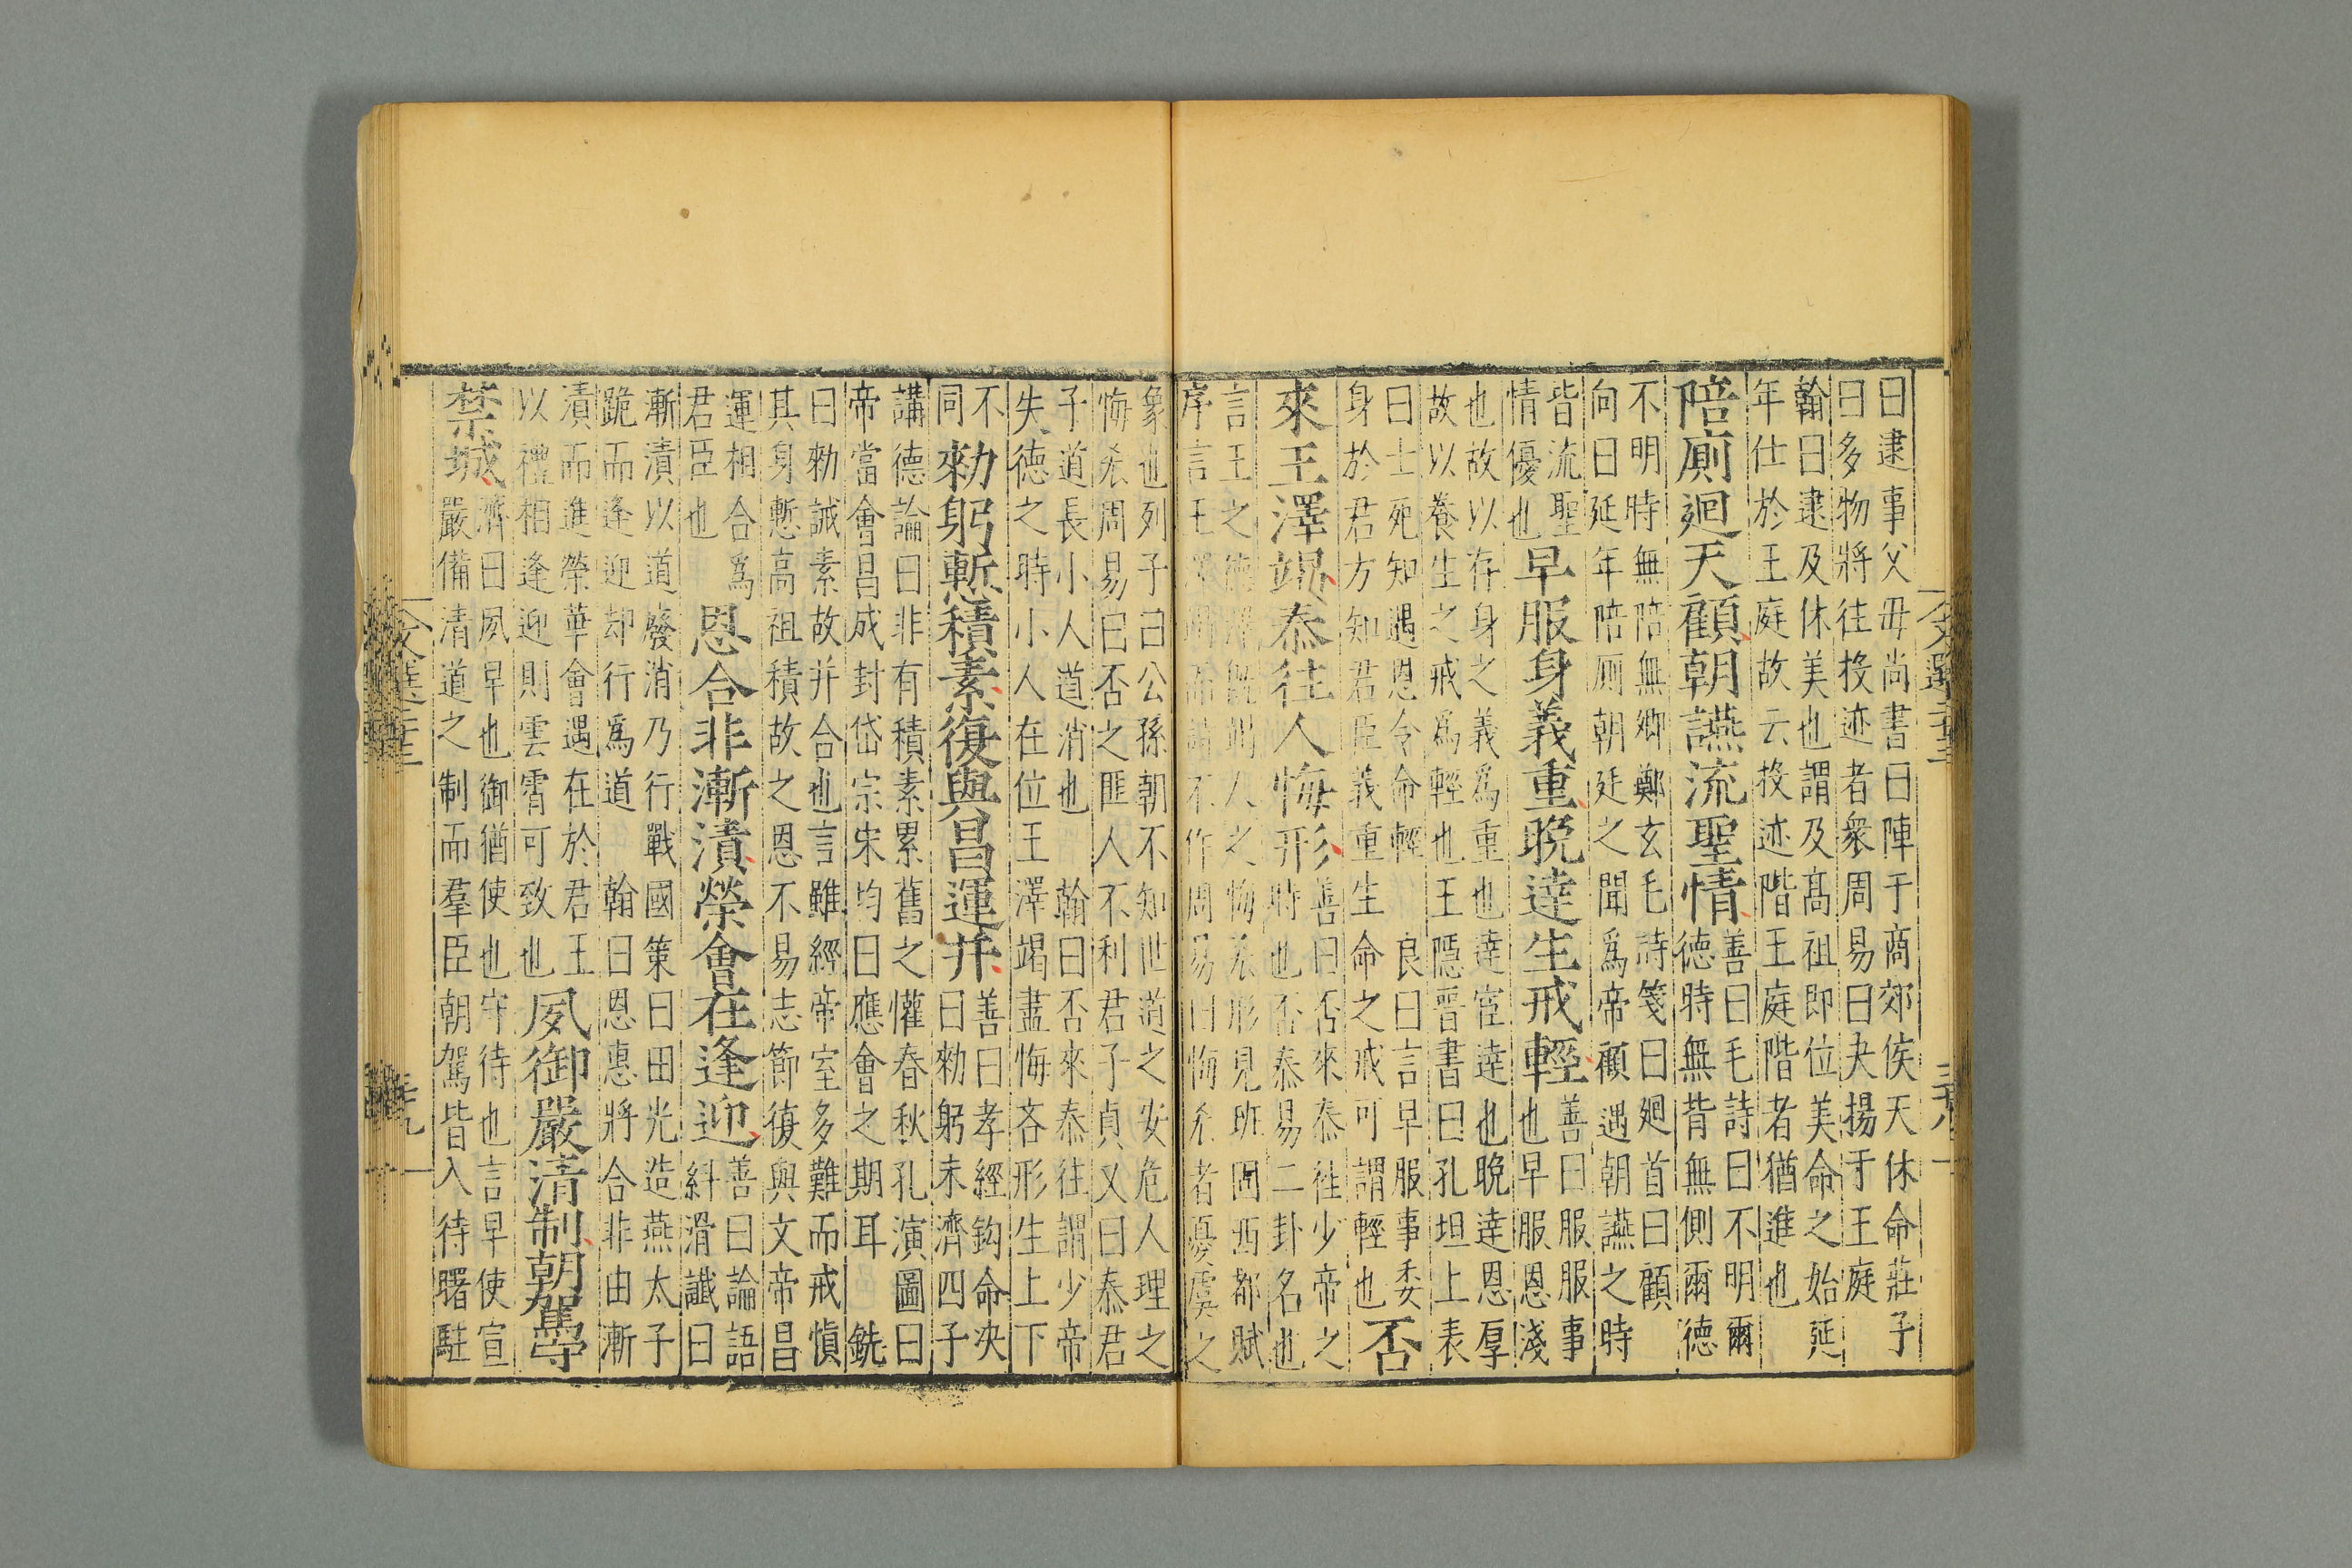 曰逮事父毋尚書曰陣于商郊俟天休命莊子
曰多物將徃投迹者衆周易曰夬揚于王庭
翰曰逮及休美也謂及髙祖即位美命之始延
年仕於王庭故云投迹階王庭階者猶進也
陪廁迴天顧朝讌流聖情
善曰毛詩曰不明爾
德時無背無側爾德
不明時無陪無卿鄭玄毛詩箋曰廻首曰顧
向曰延年陪厠朝廷之聞爲帝顧遇朝讌之時
皆流聖
情優也
早服身義重晩逹生戒輕
善曰服服事
也早服服恩淺
也故以存身之義爲重也逹宦逹也晩逹恩厚
故以養生之戒爲輕也王隱晋書曰孔坦上表
曰士死知遇恩令命輕 良曰言早服事委
身於君方知君臣義重生命之戒可謂輕也
否
來王澤竭泰往人悔形
善曰否來泰徃少帝之
時也否泰易二卦名也
言王之德澤既竭人之悔吝形見班固西都賦
序言王澤竭而詩不作周易曰悔吝者憂虞之
文選二十三
三十八
象也列子曰公孫朝不知世道之安危人理之
悔吝周易曰否之匪人不利君子貞又曰泰君
子道長小人道消也 翰曰否來泰往謂少帝
失德之時小人在位王澤竭盡悔吝形生上下
不
同
勑躬慙積素復與昌運并
善曰孝經鈎命決
曰勑躬未濟四子
講德論曰非有積素累舊之懽春秋孔演圖曰
帝當會昌成封岱宗宋均曰應會之期耳 銑
曰勑誡素故并合也言雖經帝室多難而戒愼
其身慙高祖積故之恩不易志節復與文帝昌
運相合爲
君臣也
恩合非漸漬榮會在逢迎
善曰論語
糾滑讖曰
漸漬以道廢消乃行戰國策曰田光造燕太子
跪而逢迎却行爲道 翰曰恩惠將合非由漸
漬而進榮華會遇在於君王
以禮相逢迎則雲霄可致也
夙御嚴清制朝駕守
禁城
濟曰夙早也御猶使也守待也言早使宣
嚴備清道之制而羣臣朝駕皆入待曙駐